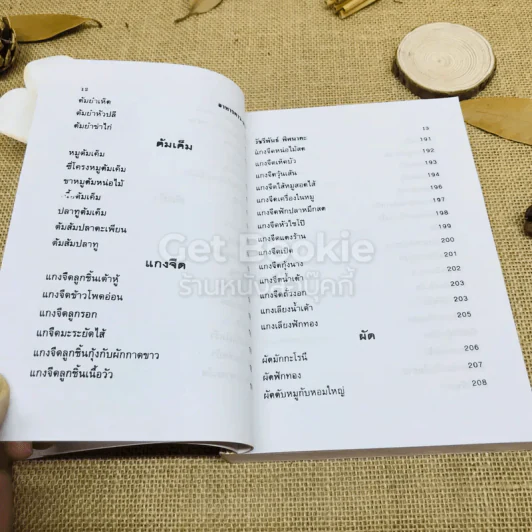 12
ต้มยำเห็ด
ต้มยำหัวปลี
ต้มยำขาไก่
ต้มเค็ม
หมูต้มเค็ม
ซี่โครงหมูต้มเค็ม
ขาหมูต้มหน่อไม้
ต้มเค็ม
ปลาทูต้มเค็ม
ต้มส้มปลาตะเพียน
ต้มส้มปลาทู
แกงจืด
แกงจืดลูกชิ้นเต้าหู้
แกงจืดข้าวโพดอ่อน
แกงจืดลูกรอก
แกงจืดมะระยัดไส้
แกงจืดลูกชิ้นกุ้งกับผักกาดขาว
แกงจืดลูกชิ้นเนื้อวัว
13
แกงจืดหน่อไม้สด 191
แกงจืดเห็ดบัว 192
แกงจืดวุ้นเส้น 193
แกงจืดไส้หมูสอดไส้ 194
แกงจืดเครื่องในหมู 196
แกงจืดฟักปลาหมึกสด 197
แกงจืดหัวไชโป๊ 198
แกงจืดแตงร้าน 199
แกงจืดเป็ด 200
แกงจืดกุ้งนาง 201
แกงจืดน้ำเต้า 202
แกงจืดถั่วงอก 203
แกงเลียงน้ำเต้า 203
แกงเลียงฟักทอง 205
ผัด
ผัดมักกะโรนี 206
ผัดฟักทอง 207
ผัดตับหมูกับหอมใหญ่ 208
Get Bookie
ร้านหนังสือเก็ทบุ๊คกี้